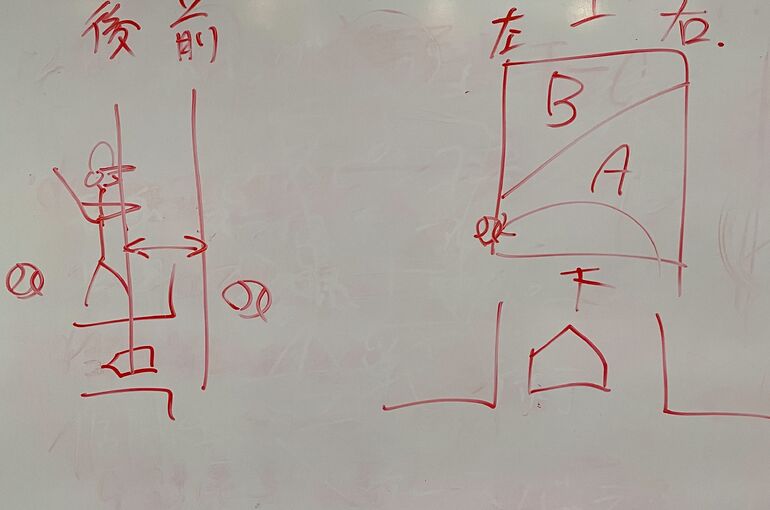 後 前
左 上 右
B
A
下